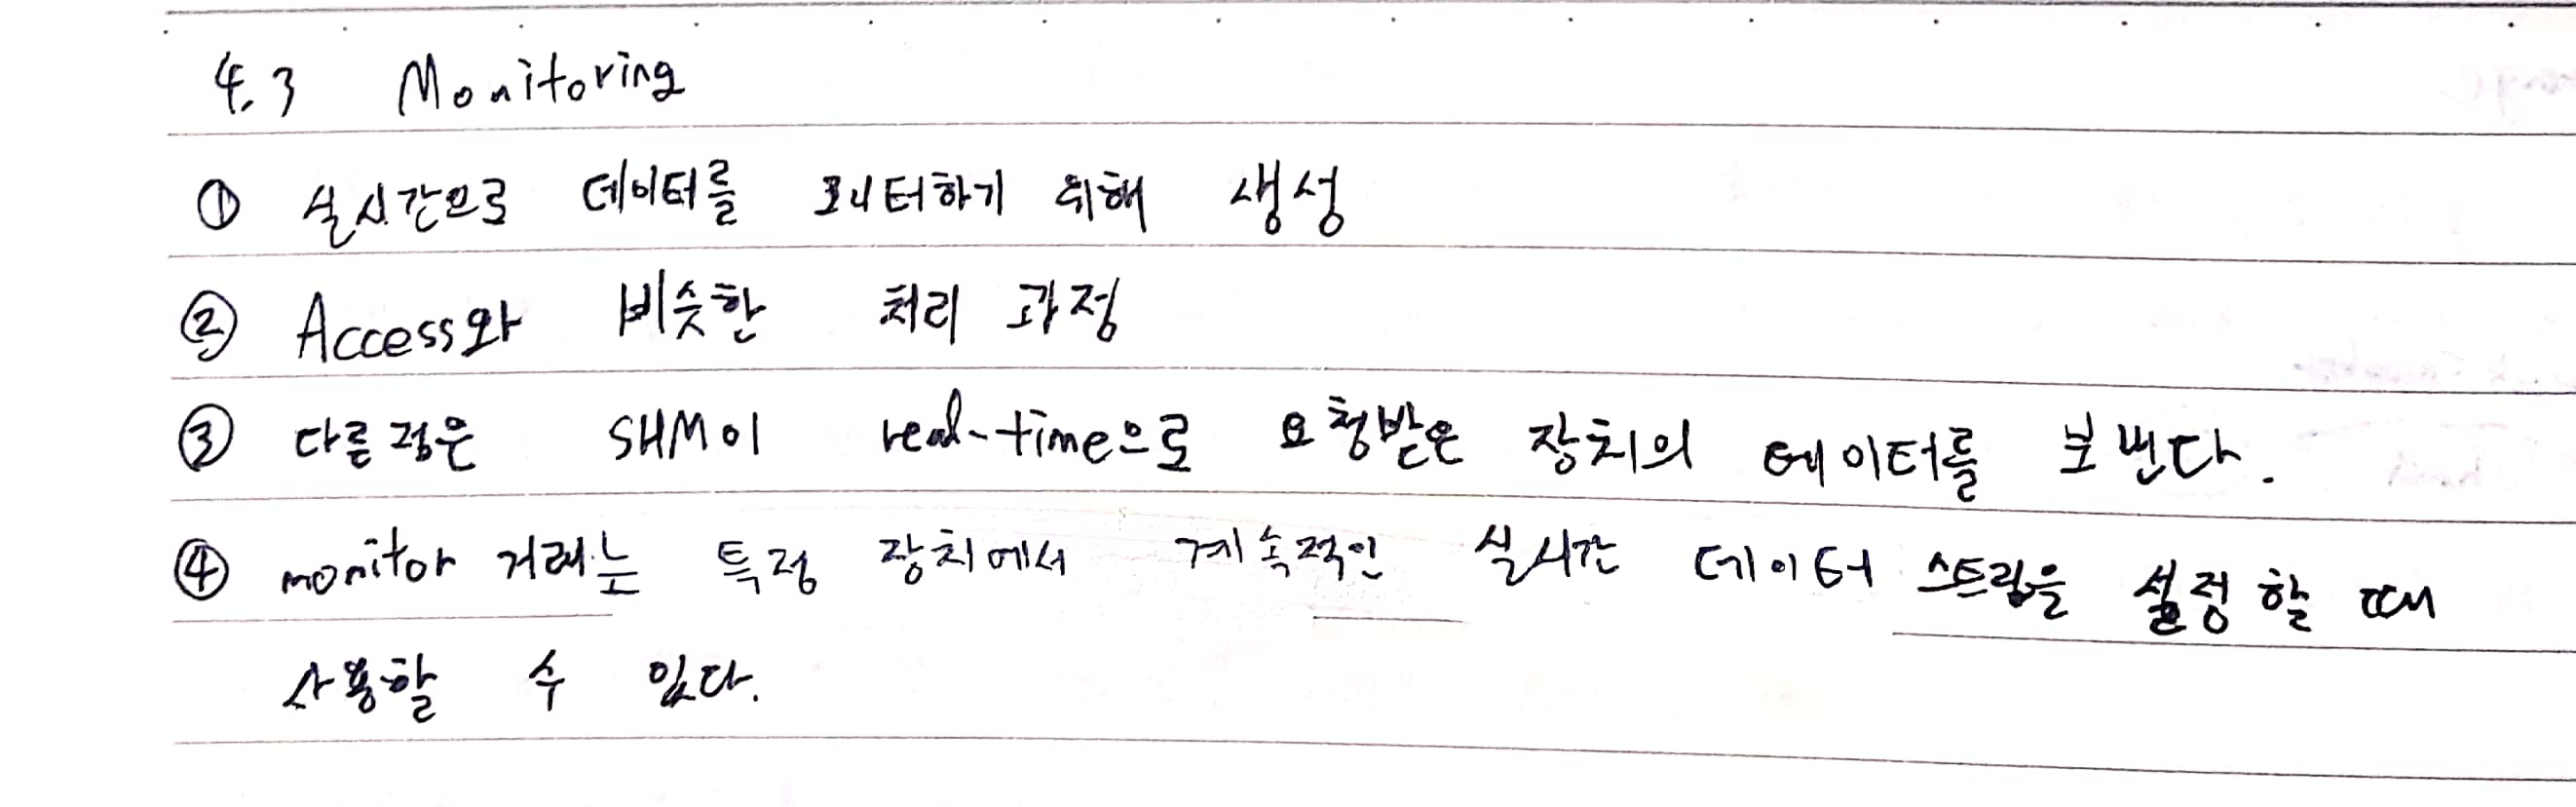 4.3 Monitoring
① 실시간으로 데이터를 모니터하기 위해 생성
② Access와 비슷한 처리 과정
③ 다른점은 SHM이 real-time으로 요청받은 장치의 데이터를 보낸다.
④ monitor 거래는 특정 장치에서 계속적인 실시간 데이터 스트림을 설정할 때
사용할 수 있다.